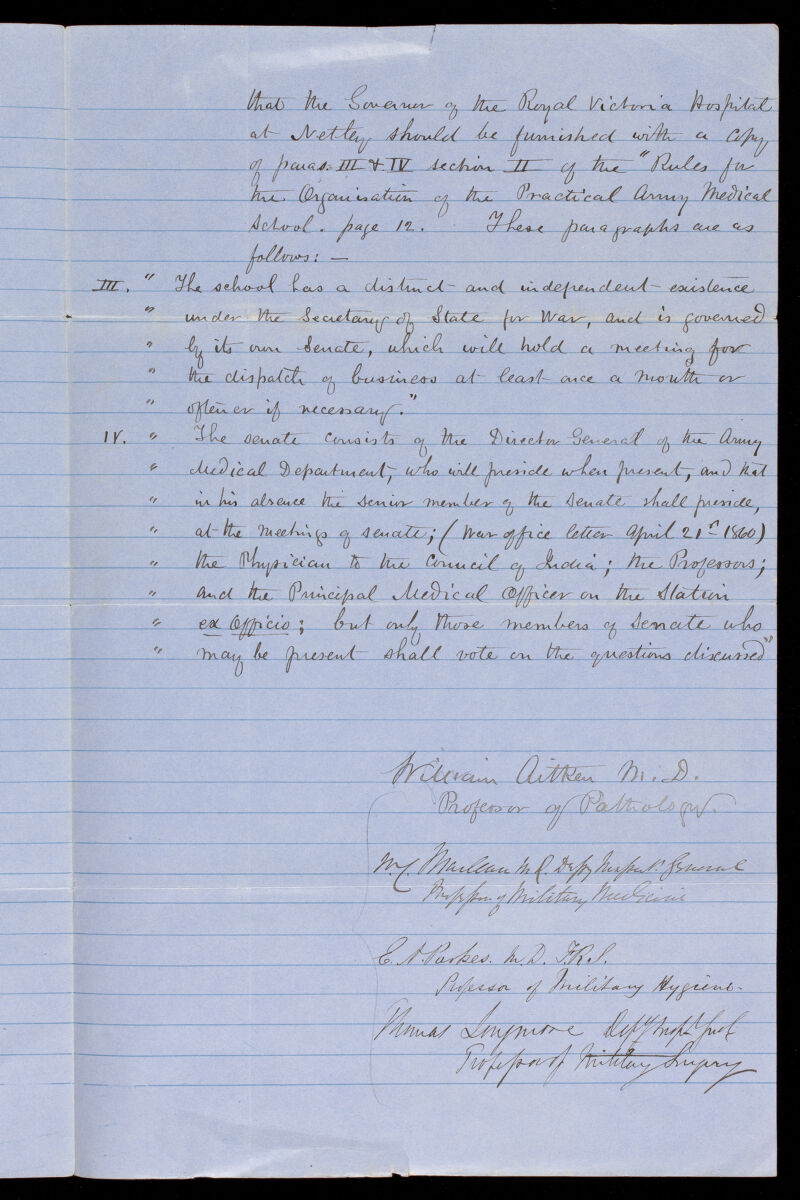 that the Governor of the Royal Victoria Hospital
at Netley should be furnished with a copy
of paras. III & IV section II of the "Rules for
the Organisation of the Practical Army Medical
School. page 12. These paragraphs are as
follows: —
III. " The school has a distinct and independent existence
" under the Secretary of State for War, and is governed
" by its own Senate, which will hold a meeting for
" the dispatch of business at least once a month or
" oftener if necessary."
IV. " The senate consists of the Director General of the Army
" Medical Department, who will preside when present, and that
" in his absence the senior member of the Senate shall preside,
" at the meetings of senate; (War office letter April 21st 1860)
" the Physician to the Council of India; the Professors;
" and the Principal Medical Officer on the Station
" ex officio; but only those members of Senate who
" may be present shall vote on the questions discussed"
William Aitken M.D.
Professor of Pathology.
WC Maclean M.D. Depy Inspect. General
Professor of Military Medicine
E. A. Parkes. M.D. F.R.S.
Professor of Military Hygiene.
Thomas Longmore Depy Inspr Genl
Professor of Military Surgery